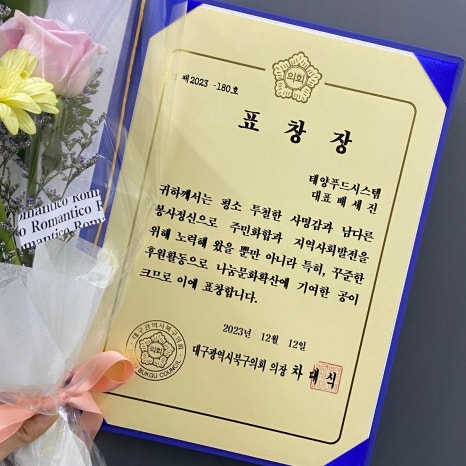 의회
제2023 -180호
표 창 장
태양푸드시스템
대표 배 세 진
귀하께서는 평소 투철한 사명감과 남다른
봉사정신으로 주민화합과 지역사회발전을
위해 노력해 왔을 뿐만 아니라 특히, 꾸준한
후원활동으로 나눔문화확산에 기여한 공이
크므로 이에 표창합니다.
2023년 12월 12일
대구광역시북구의회 의장 차 대 식
대구광역시북구의회
의회
BUKGU COUNCIL
Romantico Rom
o Romantico R
Romantico